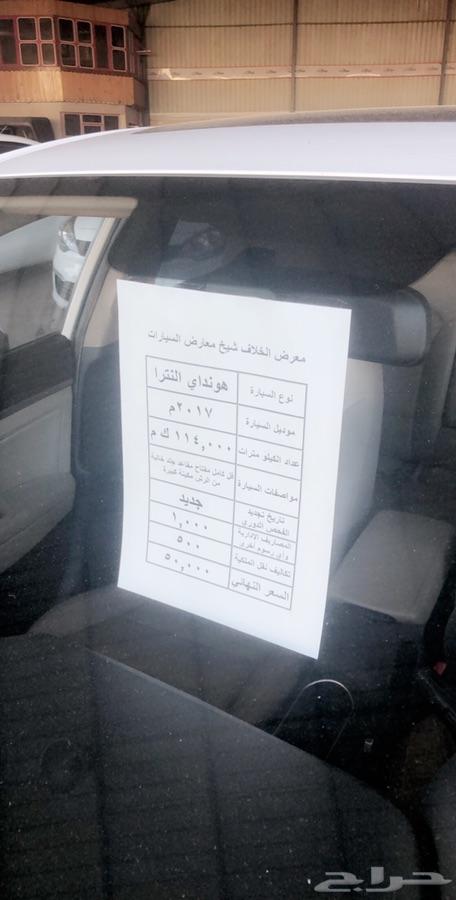 معرض الخلاف شيخ معارض السيارات
نوع السيارة هونداي النترا
موديل السيارة ٢٠١٧م
عداد الكيلو مترات ١١٤,٠٠٠ ك م
مواصفات السيارة فل كامل مفتاح مقاعد جلد خالية
من الرش مكينة كبيرة
تاريخ تجديد
الفحص الدوري جديد
المصاريف الإدارية
وأي رسوم أخرى ١,٠٠٠
تكاليف نقل الملكية ٥٠٠
السعر النهائي ٥٠,٠٠٠
حراج